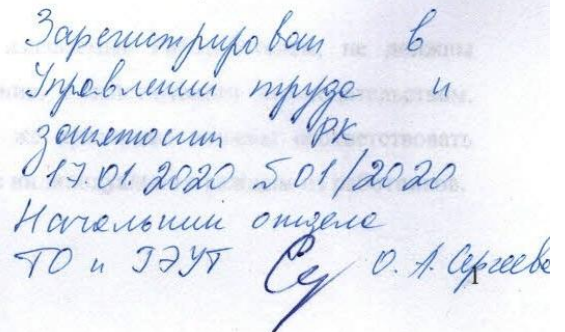 Зарегистрирован в
Управлении труда и
занятости РК
17.01.2020 № 01/2020
Начальник отдела
ТО и ГЭУТ О. А. Сергеева
1